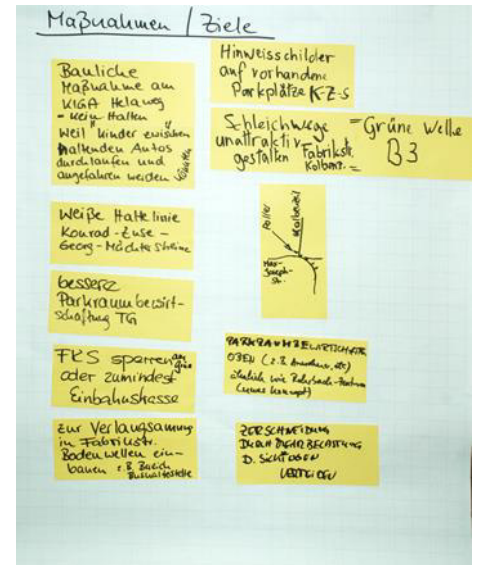 Maßnahmen / Ziele
Bauliche
Maßnahme am
KIGA Helaweg
- kein Halten
Weil Kinder zwischen
haltenden Autos
durchlaufen und
angefahren werden könnten
Weiße Haltelinie
Konrad-Zuse-
Georg-Mächtersheime
bessere
Parkraumbewirt-
schaftung TG
FKS sperren
oder zumindest
Einbahnstrasse
zur Verlangsamung
in Fabrikstr.
Bodenwellen ein-
bauen z.B. Bereich
Bushaltestelle
Hinweisschilder
auf vorhandene
Parkplätze K-Z-S
Schleichwege = Grüne Welle
unattraktiv B3
gestalten Fabrikstr.
Poller
Max-
Joseph-
Str.
PARKRAUMBEWIRTSCHAFTG
OBEN (z.B. Anwohner, etc)
ähnlich wie Rohrbach-Zentrum
ZERSCHNEIDUNG
DURCH MEHRBELASTUNG
D. SICKINGEN
VERMEIDEN